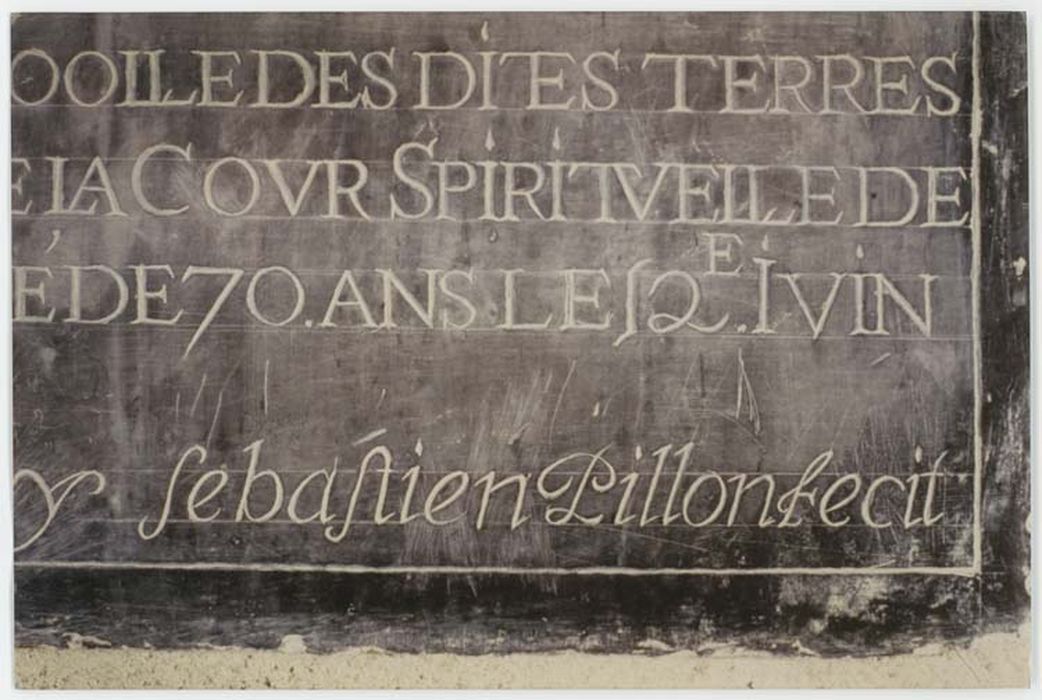 OOILE DES DITES TERRES
E LA COVR SPIRITVELLE DE
É DE 70. ANS LE 12E. IVIN
y ſebaſtien Pillon fecit